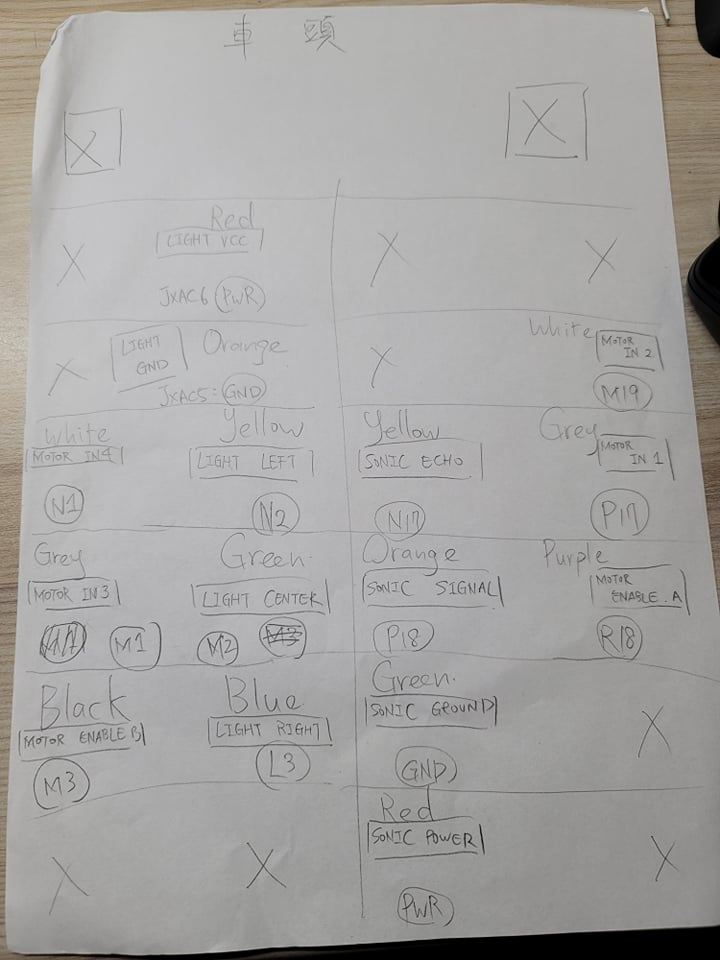 車 頭
X X
Red
X LIGHT VCC X X
JXAC6 PWR
X LIGHT GND Orange
JXAC5: GND
X
White MOTOR IN 2
M19
White
MOTOR IN4
N1
Yellow
LIGHT LEFT
N2
Yellow
SONIC ECHO
N17
Grey
MOTOR IN 1
P17
Grey
MOTOR IN3
M1
Green.
LIGHT CENTER
M2 M3
Orange
SONIC SIGNAL
P18
Purple
MOTOR ENABLE.A
R18
Black
MOTOR ENABLE B
M3
Blue
LIGHT RIGHT
L3
Green.
SONIC GROUND
GND
X
X X
Red
SONIC POWER
PWR
X